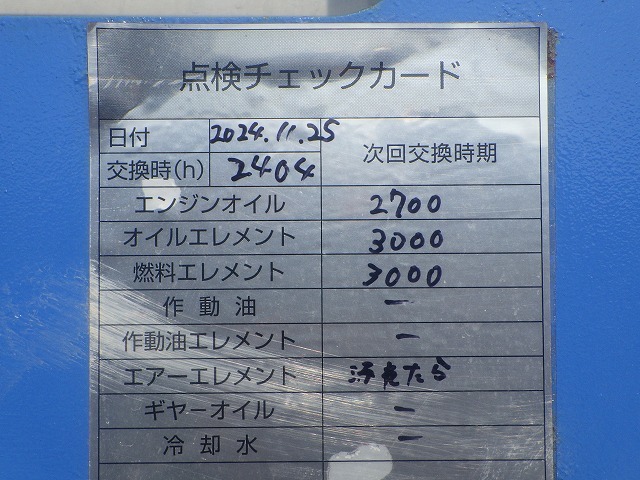 点検チェックカード
日付 2024.11.25
交換時(h) 2404 次回交換時期
エンジンオイル 2700
オイルエレメント 3000
燃料エレメント 3000
作動油 ー
作動油エレメント ー
エアーエレメント 汚れたら
ギヤーオイル ー
冷却水 ー